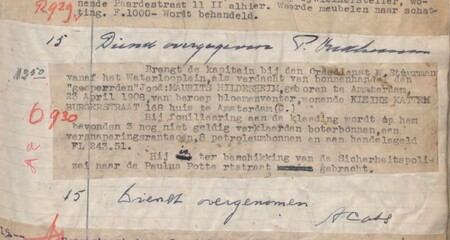 nende Paardestraat 11 II alhier. Waarde meubelen naar schat-
ting. F.1000- Wordt behandeld.
R929
15 Dienst overgegeven
1250
Brengt de kapitein bij den Grasdienst H. Stuurman
vanaf het Waterlooplein, als verdacht van bonnenhandel, den
"gesperrden" Jood: MAURITS HILDESHEIM, geboren te Amsterdam,
23 April 1908, van beroep bloemenventer, wonende KLEINE KATTEN
BURGERSTRAAT 168 huis te Amsterdam(C.)
0930
Bij fouilleering aan de kleeding wordt op hem
bevonden 3 nog niet geldig verklaarden boterbonnen, een
versnaperingsrantsoen, 8 petroleumbonnen en aan handelsgeld
FL 243.51.
Hij is ter beschikking van de Sicherheitspoli-
zei naar de Paulus Potterstraat gebracht.
15 Dienst overgenomen